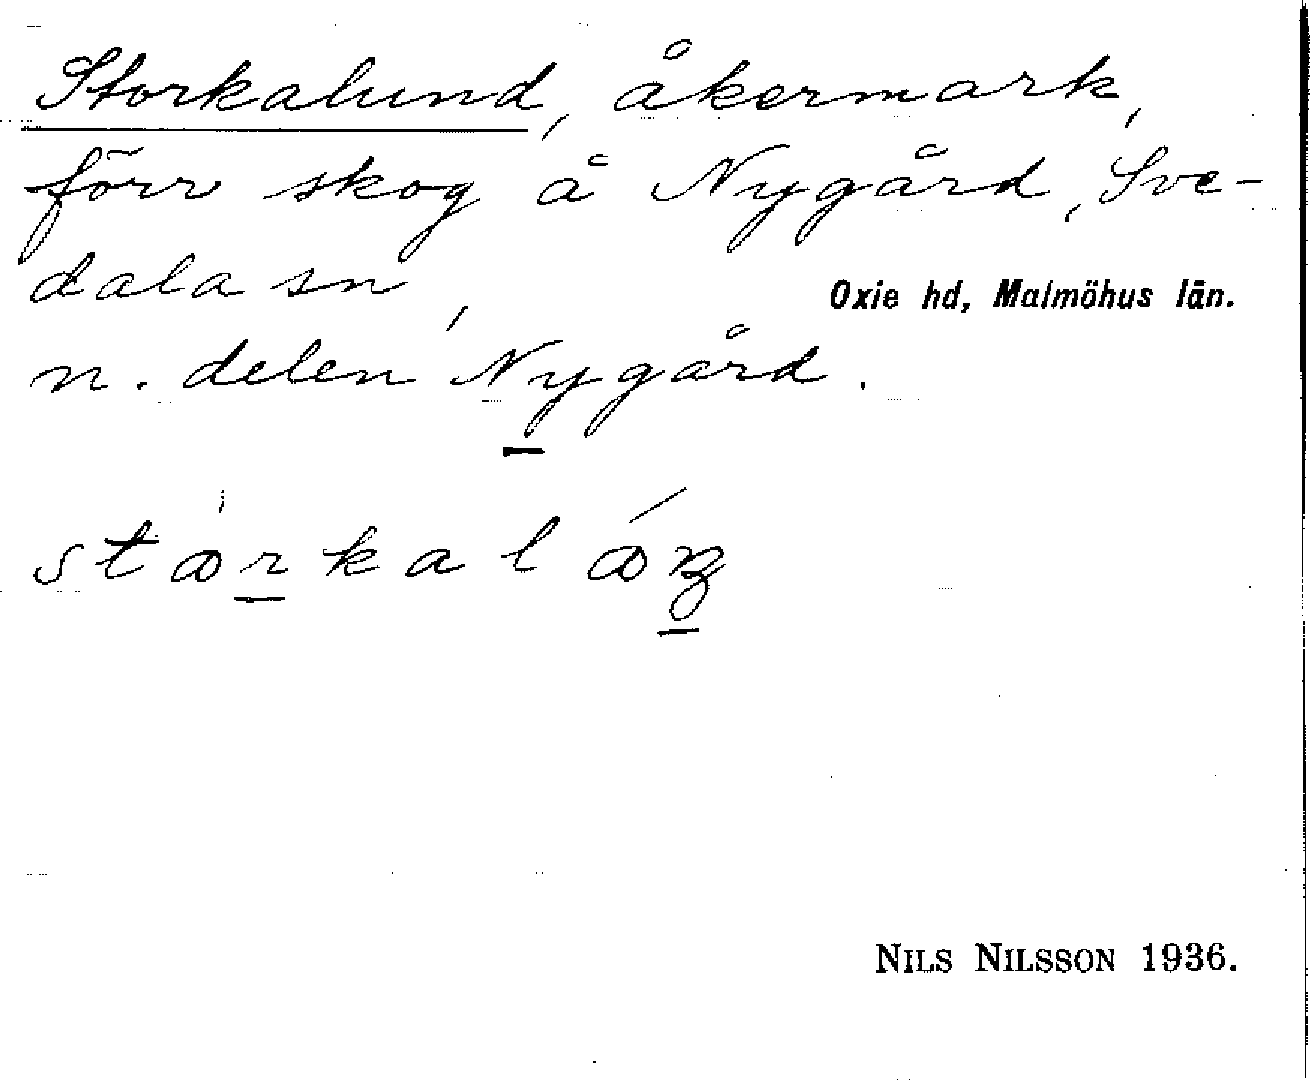 Storkalund, åkermark,
förr skog å Nygård, Sve-
dala sn,
Oxie hd, Malmöhus län.
n. delen Nygård.
NILS NILSSON 1936.